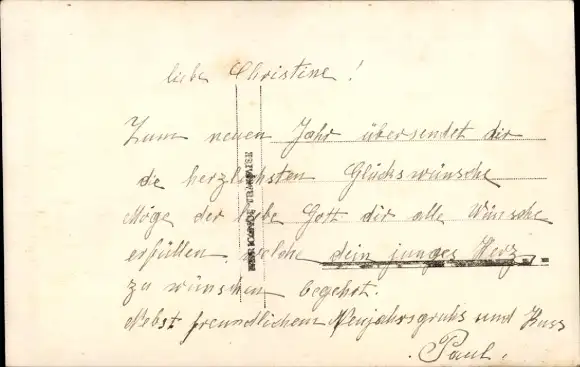 liebe Christine!
Zum neuen Jahr übersendet dir
die herzlichsten Glückswünsche
Möge der liebe Gott dir alle Wünsche
erfüllen welche dein junges Herz
zu wünschen begehrt.
Nebst freundlichem Neujahrsgruhs und Kuss
Paul.